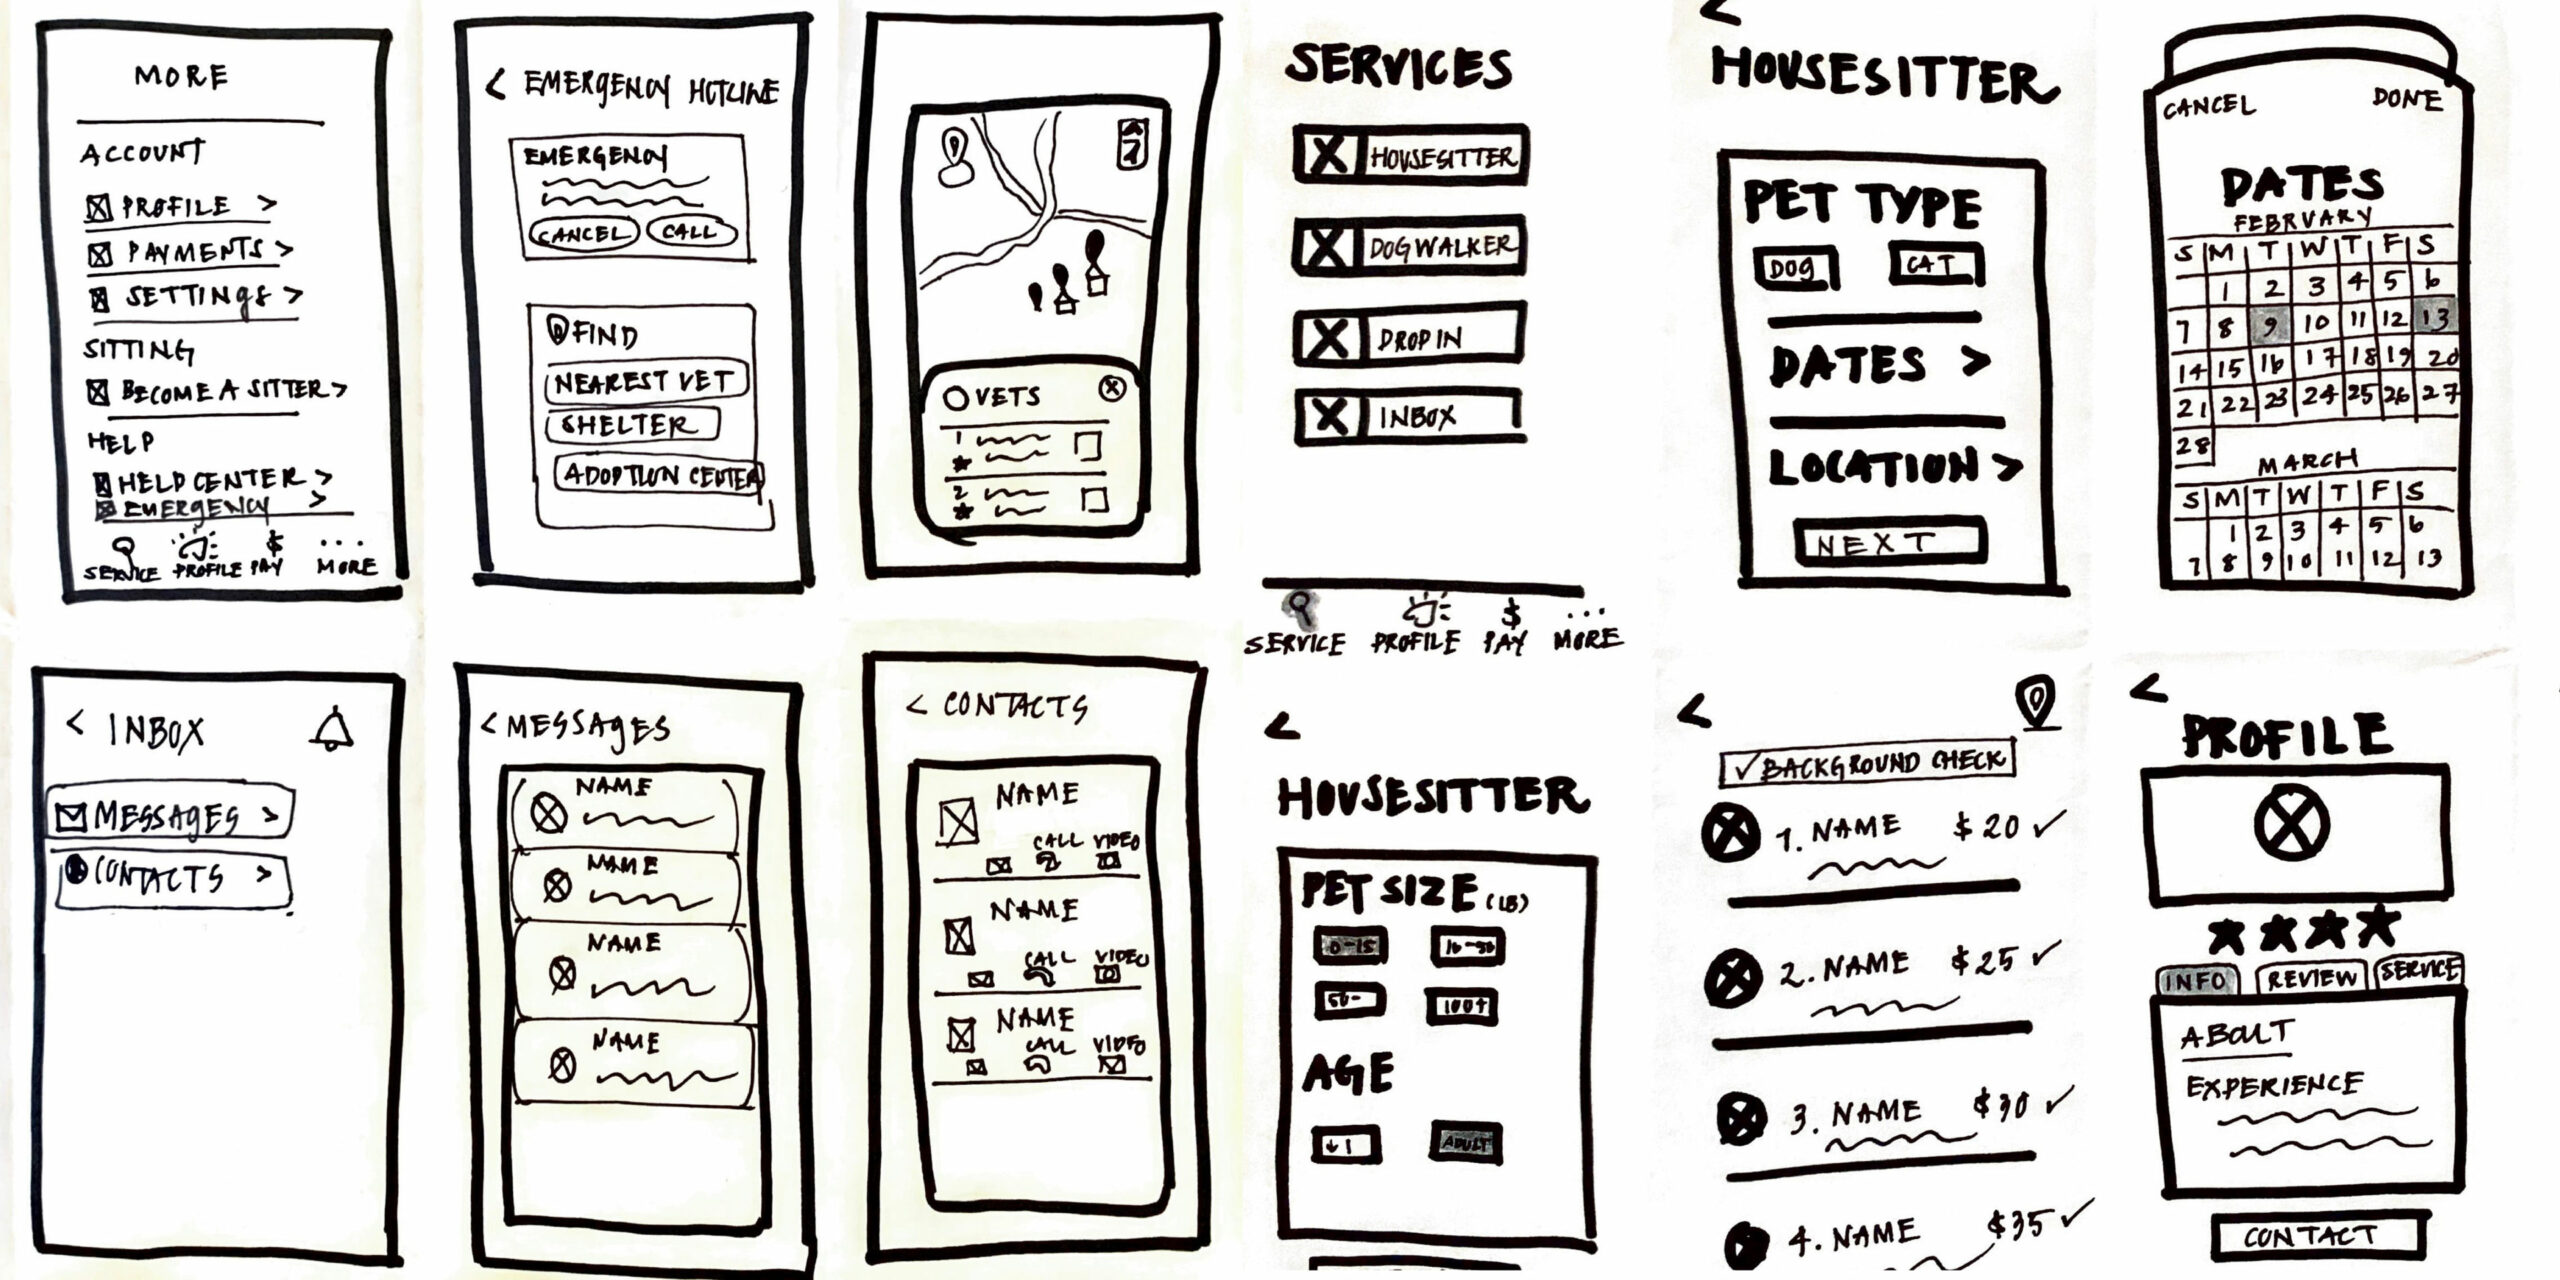 MORE
ACCOUNT
PROFILE >
PAYMENTS >
SETTINGS >
SITTING
BECOME A SITTER >
HELP
HELP CENTER >
EMERGENCY >
SERVICE PROFILE PAY MORE
< EMERGENCY HOTLINE
EMERGENCY
CANCEL CALL
FIND
NEAREST VET
SHELTER
ADOPTION CENTER
VETS
1
2
SERVICES
HOUSESITTER
DOGWALKER
DROP IN
INBOX
SERVICE PROFILE PAY MORE
<
HOUSESITTER
PET TYPE
DOG CAT
DATES >
LOCATION >
NEXT
CANCEL DONE
DATES
FEBRUARY
S M T W T F S
1 2 3 4 5 6
7 8 9 10 11 12 13
14 15 16 17 18 19 20
21 22 23 24 25 26 27
28
MARCH
S M T W T F S
1 2 3 4 5 6
7 8 9 10 11 12 13
< INBOX
MESSAGES >
CONTACTS >
< MESSAGES
NAME
NAME
NAME
NAME
< CONTACTS
NAME
CALL VIDEO
NAME
CALL VIDEO
NAME
CALL VIDEO
<
HOUSESITTER
PET SIZE (LB)
0-15
50- 100+
AGE
↓1 ADULT
<
✓ BACKGROUND CHECK
1. NAME $20 ✓
2. NAME $25 ✓
3. NAME $30 ✓
4. NAME $35 ✓
<
PROFILE
INFO REVIEW SERVICE
ABOUT
EXPERIENCE
CONTACT